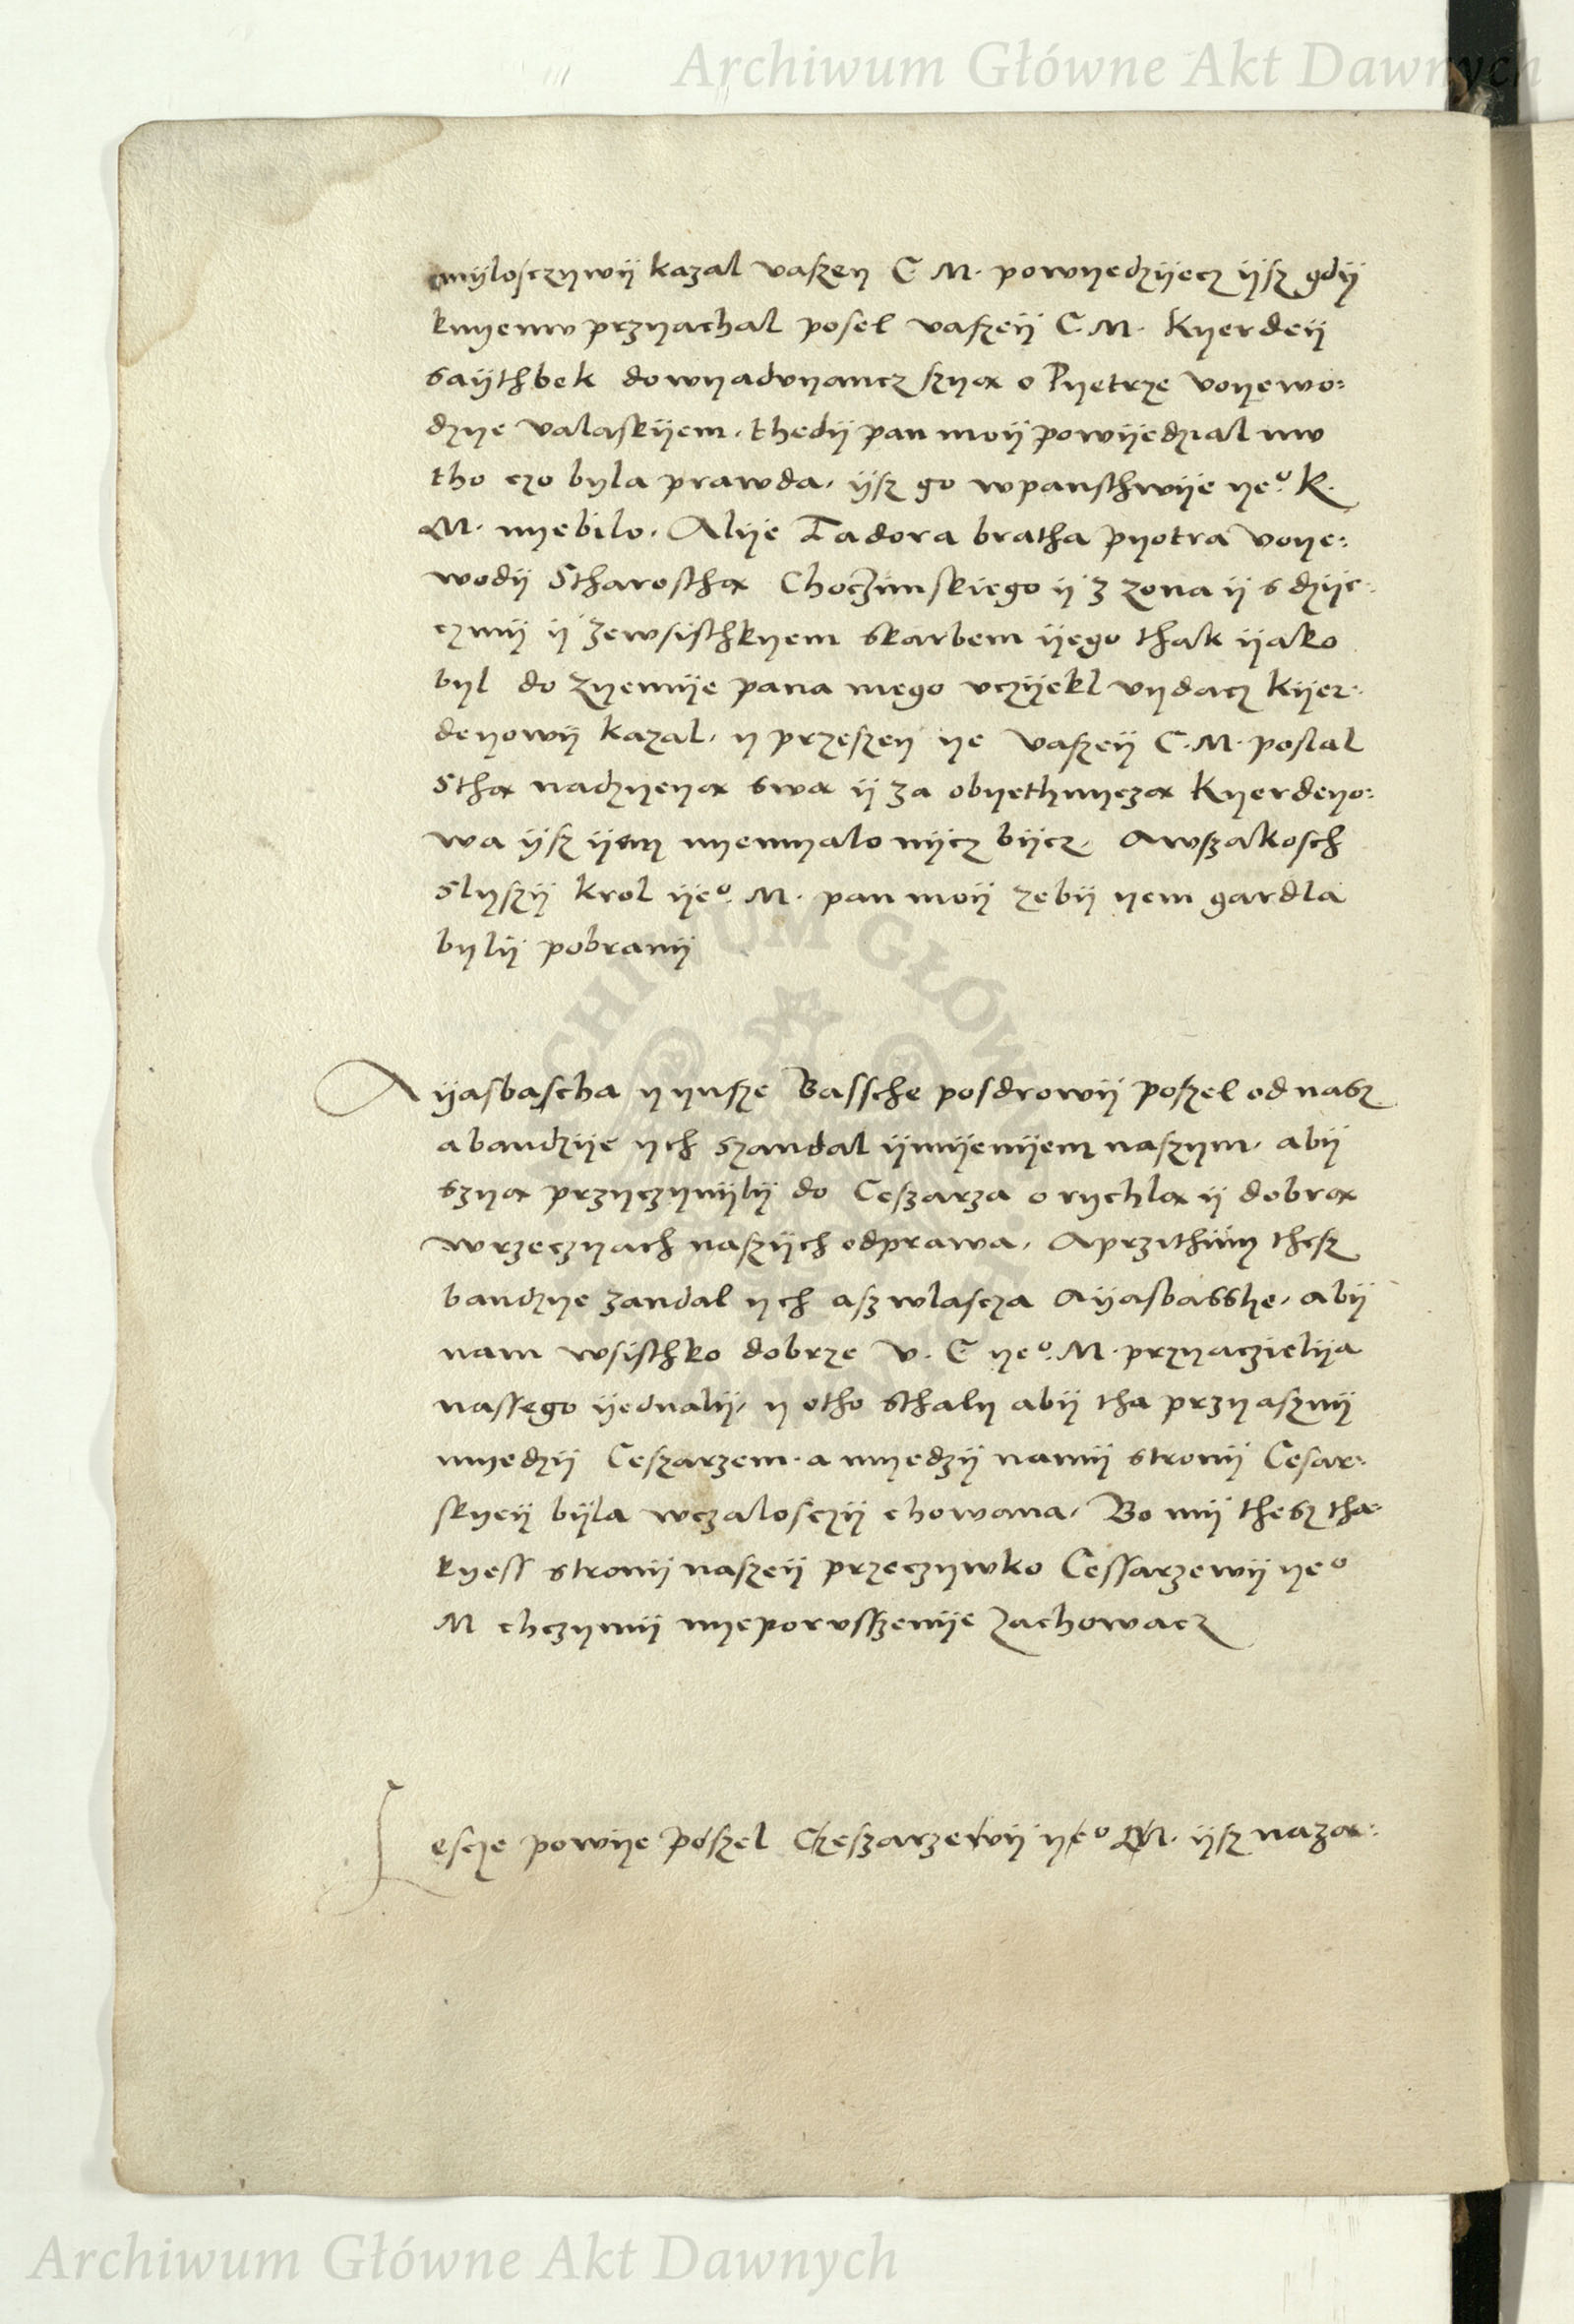 Archiwum Główne Akt Dawnych
mylosczywÿ kazal vaszeÿ C. M. powyedzÿecz ÿsz gdÿ
kmyemv przyachal posel vaszeÿ C. M. Kyerdeÿ
saÿthbek dowyadvyancz szyą o Pyetrze voyewo:
dzye valaskÿem, thedÿ pan moÿ powÿedzial mv
tho czo byla prawda, ÿsz go wpanschwÿe yeº K.
M. nyebilo. Alÿe Tadora bratha pyotra voye:
wodÿ Stharosthą Choczimskiego ÿ z zona ÿ s dzÿe:
czmÿ ÿ zewsisthkyem skarbem ÿego thak ÿako
byl do zyemÿe pana mego vczÿekl vydacz kÿer:
deyowÿ kazal, y przeszeń ye vaszeÿ C. M. poslal
Sthą nadzyeyą swą ÿ za obyethnyczą Kyerdeyo:
wa ÿsz ÿem nyemyalo nÿcz bÿcz, Awszakosch
Slyszÿ krol ÿeº M. pan moÿ zebÿ yem gardla
bylÿ pobranÿ
Aÿasbascha y ynsze Bassche posdrowÿ poszel od nasz
a bandzÿe ych szandal ÿmÿenÿem naszym, abÿ
szyą przyczynÿlÿ do Ceszarza o rychlą ÿ dobrą
wrzeczyach naszÿch odprawa, Aprzithim thesz
bandzye zandal ych asz wlascza Aÿasbasshe, abÿ
nam wsisthko dobrze v. C yeº M. przyaczielÿa
nassego ÿednalÿ, y otho sthaly abÿ tha przyasznÿ
myedzÿ Ceszarzem a myedzÿ namÿ stronÿ Cesar:
skyeÿ bÿla wczalosczÿ chowana, Bo mÿ thesz tha:
kyess stronÿ naszeÿ przeczywko Cessarzewÿ yeº
M chczymÿ nyeporvsszenÿe zachowacz
Jescze powÿe poszel Czeszarzewÿ yeº M. ÿsz nazą:
Archiwum Główne Akt Dawnych